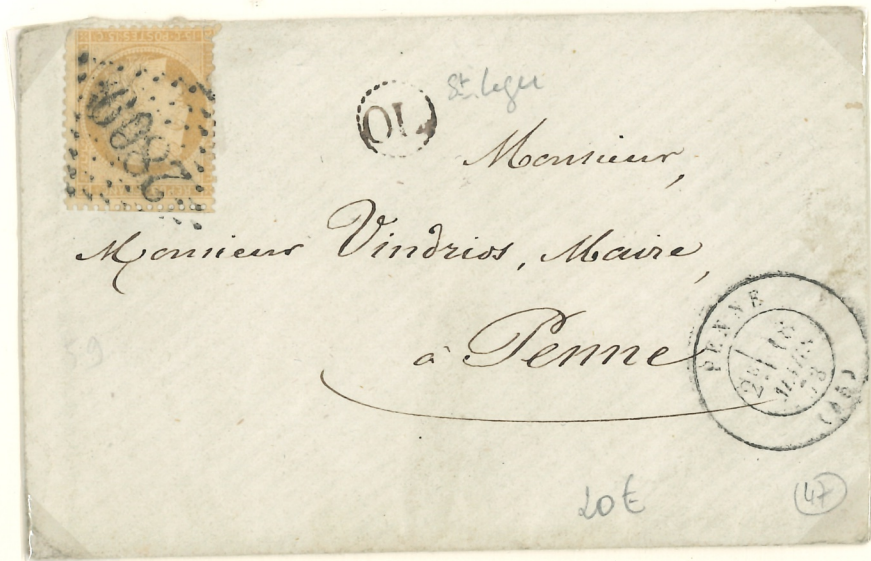 2800
OL
St. Leger
Monsieur,
Monsieur Vindrios, Maire,
à Penne
PENNE
2E
16
MARS
73
(46)
59
20€
47